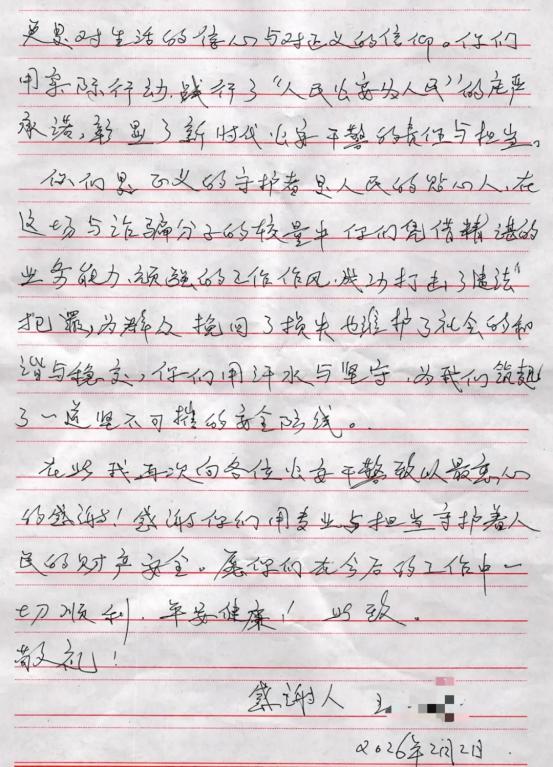 更是对生活的信心与对正义的信仰。你们
用实际行动,践行了“人民公安为人民”的庄严
承诺,彰显了新时代公安干警的责任与担当。
你们是正义的守护者是人民的贴心人,在
这场与诈骗分子的较量中你们凭借精湛的
业务能力,顽强的工作作风,成功打击了违法
犯罪,为群众挽回了损失也维护了社会的和
谐与稳定,你们用汗水与坚守,为我们筑起
了一道坚不可摧的安全防线。
在此我再次向各位公安干警致以最衷心
的感谢!感谢你们用专业与担当守护着人
民的财产安全。愿你们在今后的工作中一
切顺利,平安健康!此致。
敬礼!
感谢人
2026年2月2日